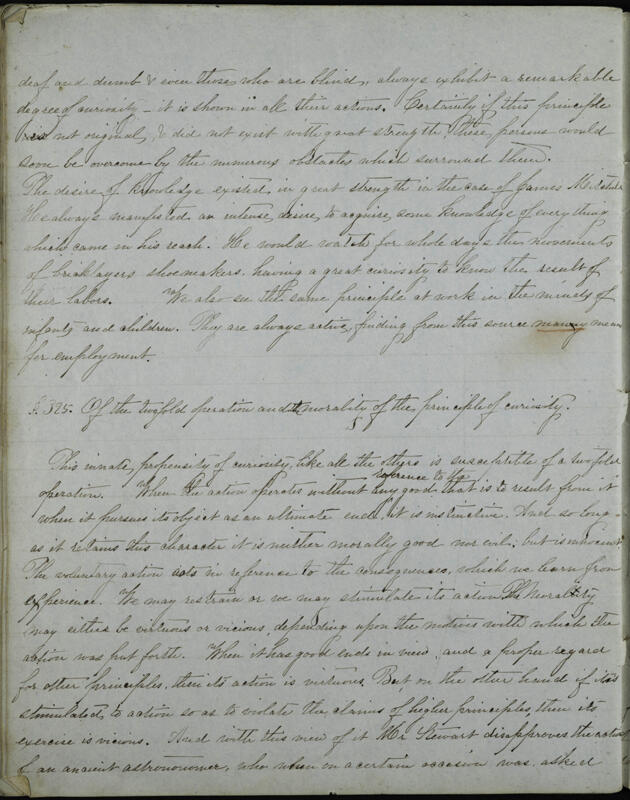 deaf and dumb & even those who are blind, always exhibit a remarkable
degree of curiosity – it is shown in all their actions. Certainly if this principle
is not original, & did not exist with great strength, these persons would
soon be overcome by the numerous obstacles which surround them.
The desire of knowledge existed, in great strength in the case of James
He always manifested an intense desire to acquire some knowledge of everything
which came in his reach. He would watch for whole days the movements
of bricklayers shoemakers. having a great curiosity to know the result of
their labors. We also see the same principle at work in the minds of
infants and children. They are always active, finding from this source many means
for employment.
§. 325. Of the twofold operation and the morality of the principle of curiosity.
This innate propensity of curiosity, like all the others is susceptible of a twofold
operation. When the action operates without reference to the any good that is to result from it
when it pursues its object as an ultimate end, it is instinctive. And so long
as it retains this character it is neither morally good nor evil, but is innocent
The voluntary action acts in reference to the consequences, which we learn from
experience. We may restrain or we may stimulate its action. The Morality
may either be virtuous or vicious, depending upon the motives with which the
action was put forth. When it has good ends in view, and a proper regard
for other principles, then its action is virtuous. But, on the other hand if it is
stimulated to action so as to violate the claims of higher principles, then its
exercise is vicious. And with this view of it Mr Stewart disapproves the action
of an ancient astronomer, who when on a certain occasion was asked